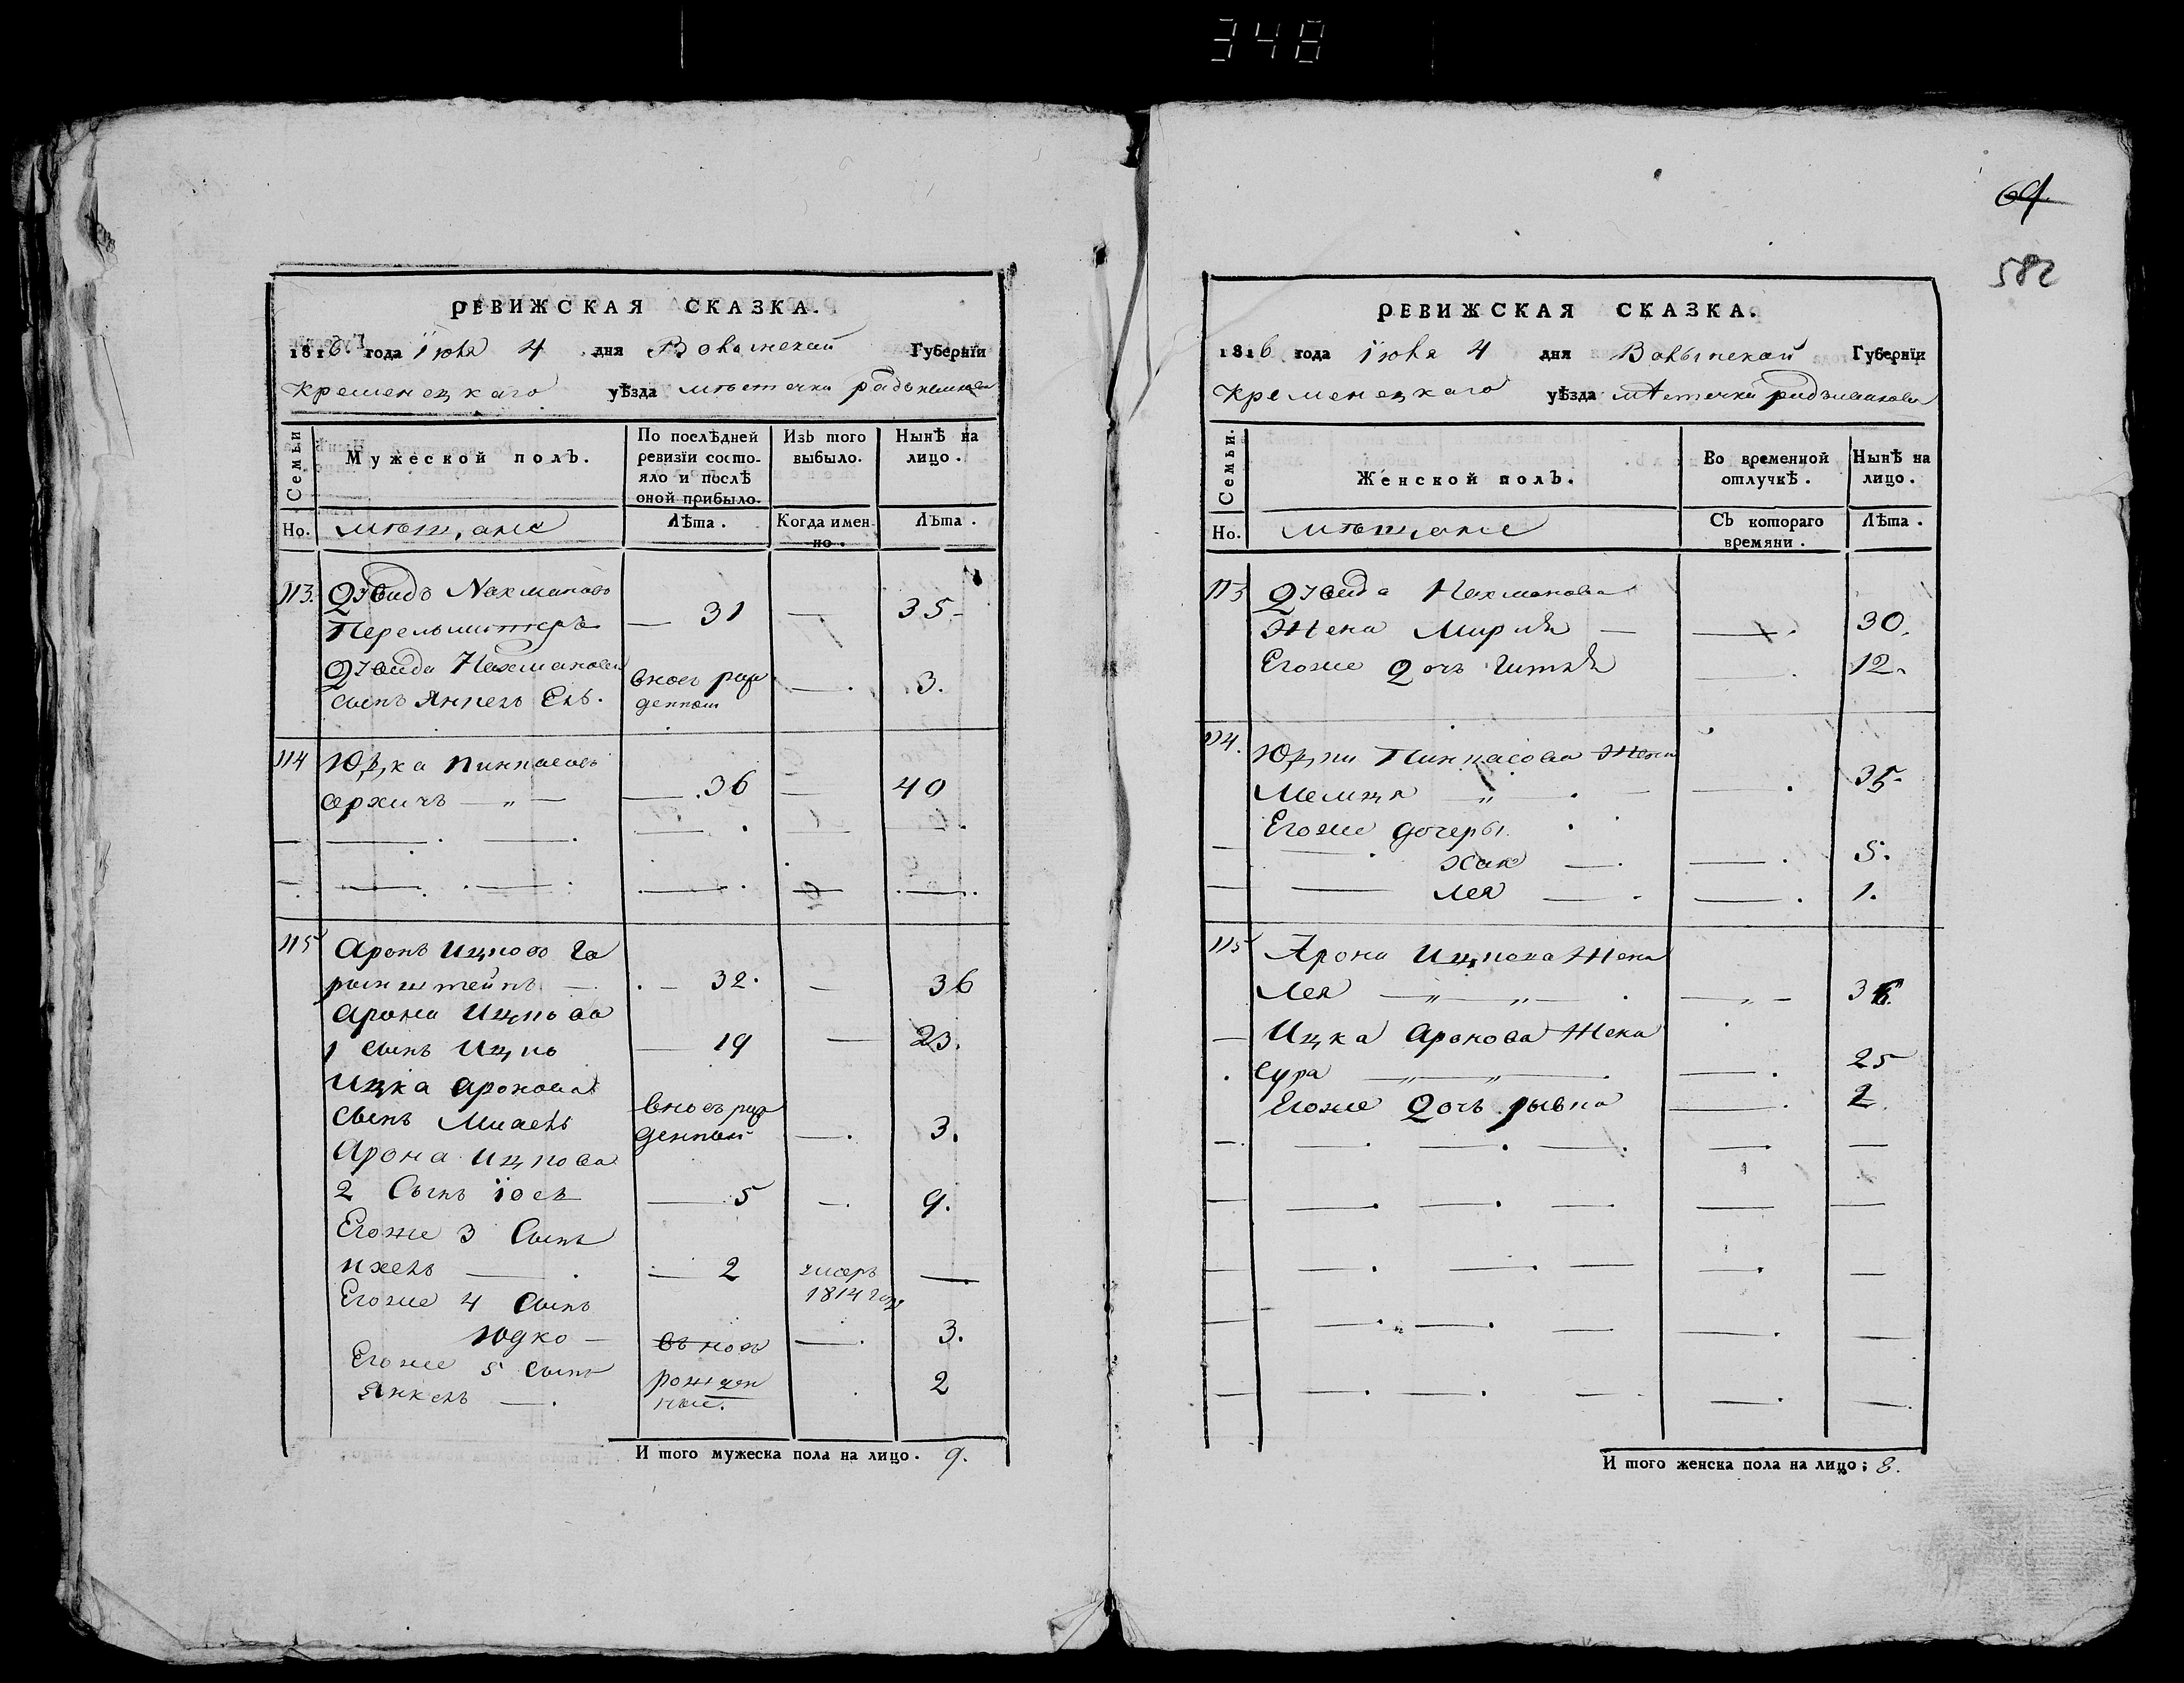 348
РЕВИЖСКАЯ СКАЗКА.
1816. года Iюля 4 дня Волынской Губернïи
Кременецкаго уѣзда мѣстечка
Семьи
Мужеской полъ.
По послѣдней ревизïи состо-
яло и послѣ
оной прибыло.
Изъ того
выбыло.
Нынѣ на
лицо.
Но. мѣщане
Лѣта.
Когда имен-
но.
Лѣта.
113. Дзвидъ Нахмановъ
Перельмиттеръ — 31 — 35.
Дзвида Нахманова
сынъ Янкель вновь рож
денной — 3.
114 Юдка Пинкасовъ
— 36 — 40
115 Аронъ Ицковъ Го
ринштейнъ — 32. — 36
Арона Ицкова
1 сынъ Ицко — 19 — 23.
Ицка Аронова
сынъ вновь рож
денный — 3.
Арона Ицкова
2 Сынъ Iось — 5 — 9.
Егоже 3 Сынъ
Ихель — 2 умеръ
1814 года —
Егоже 4 Сынъ
Юдко — въновь — 3.
Егоже 5 сынъ
Янкель — рожден
ные. 2
И того мужеска пола на лицо. 9.
64
582
РЕВИЖСКАЯ СКАЗКА.
1816 года Iюля 4 дня Волынской Губернïи
Кременецкаго уѣзда мѣстечка
Семьи.
Женской полъ.
Во временной
отлучкѣ.
Нынѣ на
лицо.
Но. мѣщане
Съ котораго
времяни.
Лѣта.
113 Дзвида Нахманова
Жена Мирля — 30.
Егоже Дочь Гитля 12.
114. Юдки Пинкасова Жена
— „ — 35.
Егоже дочеры
— 5.
Лея — 1.
115 Арона Ицкова Жена
Лея — „ — „ — 36.
Ицка Аронова Жена
Сура — „ — „ — 25
Егоже Дочь Рывка 2.
И того женска пола на лицо; 8.